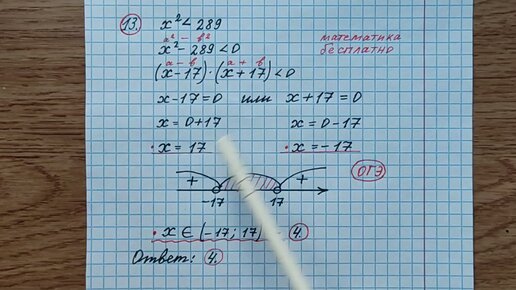 13. x² < 289
a² - b²
математика бесплатно
x² - 289 < 0
a - b a + b
(x-17)·(x+17) < 0
x-17=0 или x+17=0
x = 0+17 x = 0-17
· x = 17 · x = -17
ОГЭ
+ +
-17 17
· x ∈ (-17; 17) - 4.
Ответ: 4.